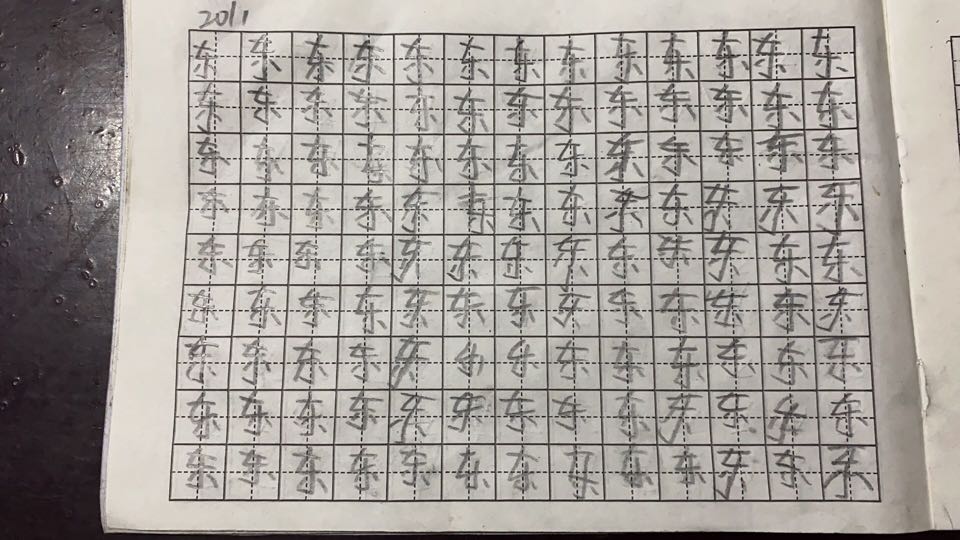 2011
东东东东东东东东东东东东东
东东东东东东东东东东东东东
东东东东东东东东东东东东东
东东东东东东东东东东东东东
东东东东东东东东东东东东东
东东东东东东东东东东东东东
东东东东东东东东东东东东东
东东东东东东东东东东东东东
东东东东东东东东东东东东东